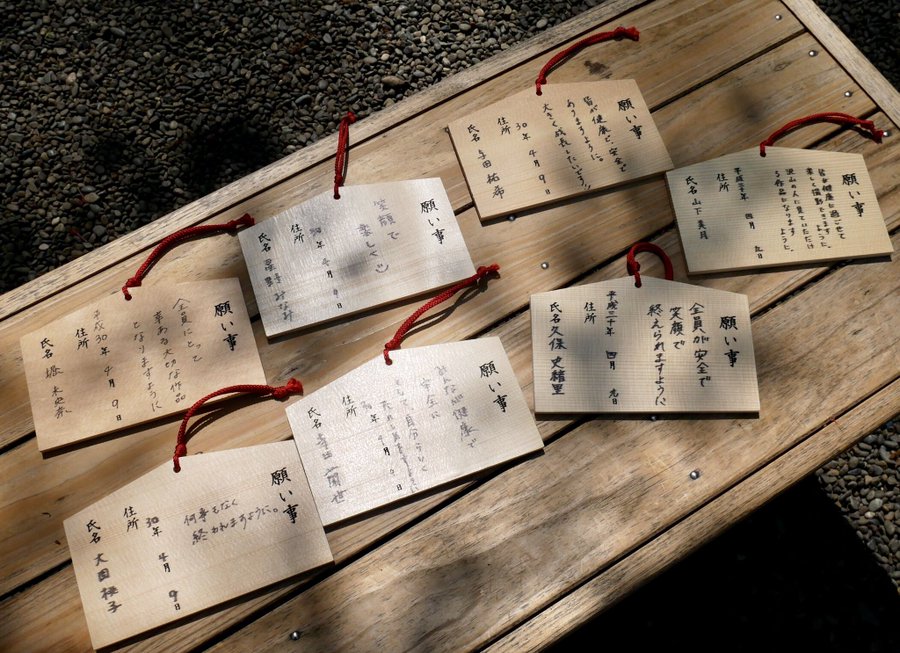 願い事
皆が健康で、安全で
ありますように。
大きく成長したいです!!
30年 4月 9日
住所
氏名 与田祐希
願い事
皆が健康に過ごせて
楽しく撮影できますよう、
沢山の人に見ていただけ
る作品になりますように。
平成三十年 四月 九日
住所
氏名 山下美月
願い事
笑顔で
楽しく
30年 4月 9日
住所
氏名 星野みなみ
願い事
全員が安全で
笑顔で
終えられますように
平成三十年 四月 九日
住所
氏名 久保史緒里
願い事
全員にとって
ある大切な作品
となりますように
平成30年 4月 9日
住所
氏名 堀未央奈
願い事
みんな健康で
安全に
自分らしく
30年 4月 9日
住所
氏名 寺田蘭世
願い事
何事もなく
終われますように。
30年 4月 9日
住所
氏名 大園桃子